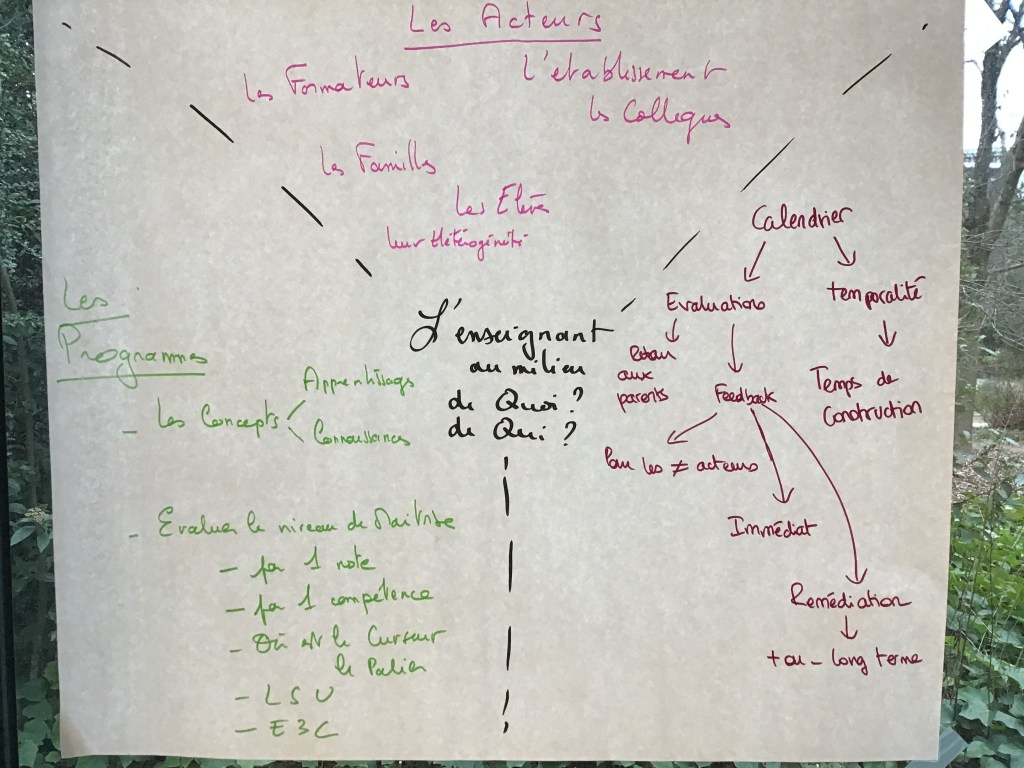 Les Acteurs
Les Formateurs
L'etablissement
les Collegues
les Familles
Les Elève
leur Hétérogénéité
L'enseignant
au milieu
de Quoi ?
de Qui ?
Les
Programmes
- Les Concepts
Apprentissages
Connaissances
- Evaluer le niveau de Maitrise
- par 1 note
- par 1 compétence
- Où est le Curseur
le Palier
- LSU
- E3C
Calendrier
Evaluations
temporalité
Retour
aux
parents
Feedback
Temps de
Construction
Pour les ≠ acteurs
Immédiat
Remédiation
+ ou - long terme